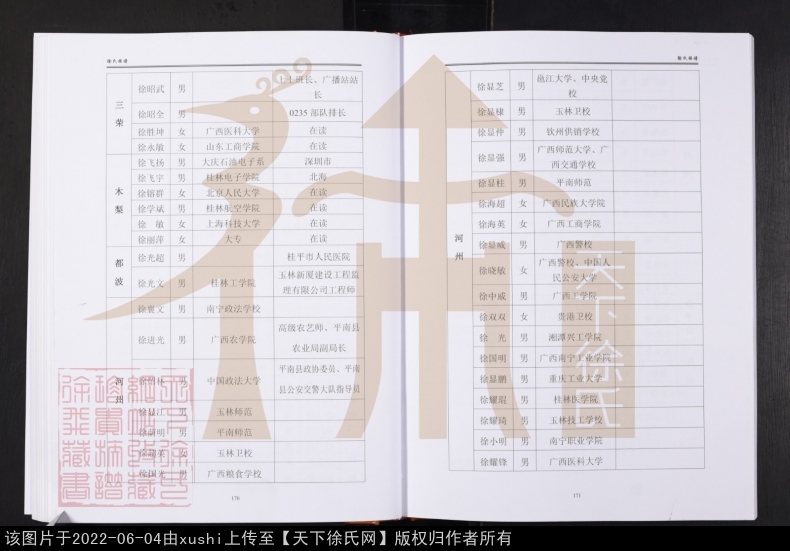 徐氏族谱
三荣
徐昭武 男 上士班长、广播站站长
徐昭全 男 0235 部队排长
徐胜坤 女 广西医科大学 在读
徐永敏 女 山东工商学院 在读
木梨
徐飞扬 男 大庆石油电子系 深圳市
徐飞宇 男 桂林电子学院 北海
徐镕群 女 北京人民大学 在读
徐学斌 男 桂林航空学院 在读
徐 敏 女 上海科技大学 在读
徐丽萍 女 大专 在读
都波
徐光超 男 桂平市人民医院
徐光文 男 桂林工学院 玉林新厦建设工程监理有限公司工程师
河州
徐襄文 男 南宁政法学校
徐进光 男 广西农学院 高级农艺师、平南县农业局副局长
男 中国政法大学 平南县政协委员、平南县公安交警大队指导员
徐显江 男 玉林师范
男 平南师范
女 玉林卫校
徐国光 男 广西粮食学校
170
徐氏族谱
河州
徐显芝 男 邕江大学、中央党校
徐显棣 男 玉林卫校
徐显伶 男 钦州供销学校
徐显强 男 广西师范大学、广西交通学校
徐显柱 男 平南师范
徐海超 女 广西民族大学院
徐海英 女 广西工商学院
徐显威 男 广西警校
徐晓敏 女 广西警校、中国人民公安大学
徐中威 男 广西工学院
徐双双 女 贵港卫校
徐 光 男 湘潭兴工学院
徐国明 男 广西南宁工业学院
徐显鹏 男 重庆工业大学
徐耀琨 男 桂林医学院
徐耀琦 男 玉林技工学校
徐小明 男 南宁职业学院
徐耀锋 男 广西医科大学
171
天下徐氏
该图片于2022-06-04由xushi上传至【天下徐氏网】版权归作者所有